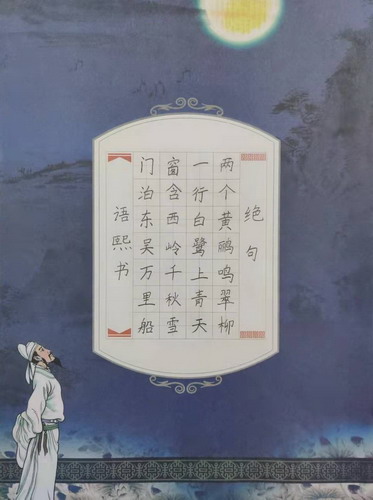 绝句
两个黄鹂鸣翠柳
一行白鹭上青天
窗含西岭千秋雪
门泊东吴万里船
语熙书